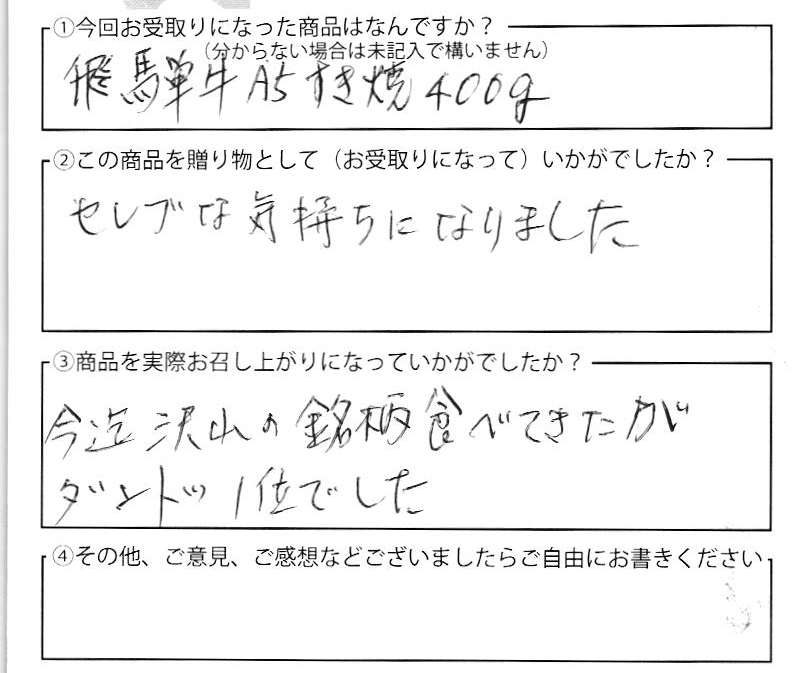 ①今回お受取りになった商品はなんですか？
（分からない場合は未記入で構いません）
飛騨牛A5すき焼400g
②この商品を贈り物として（お受取りになって）いかがでしたか？
セレブな気持ちになりました
③商品を実際お召し上がりになっていかがでしたか？
今迄沢山の銘柄食べてきたが
ダントツ1位でした
④その他、ご意見、ご感想などございましたらご自由にお書きください